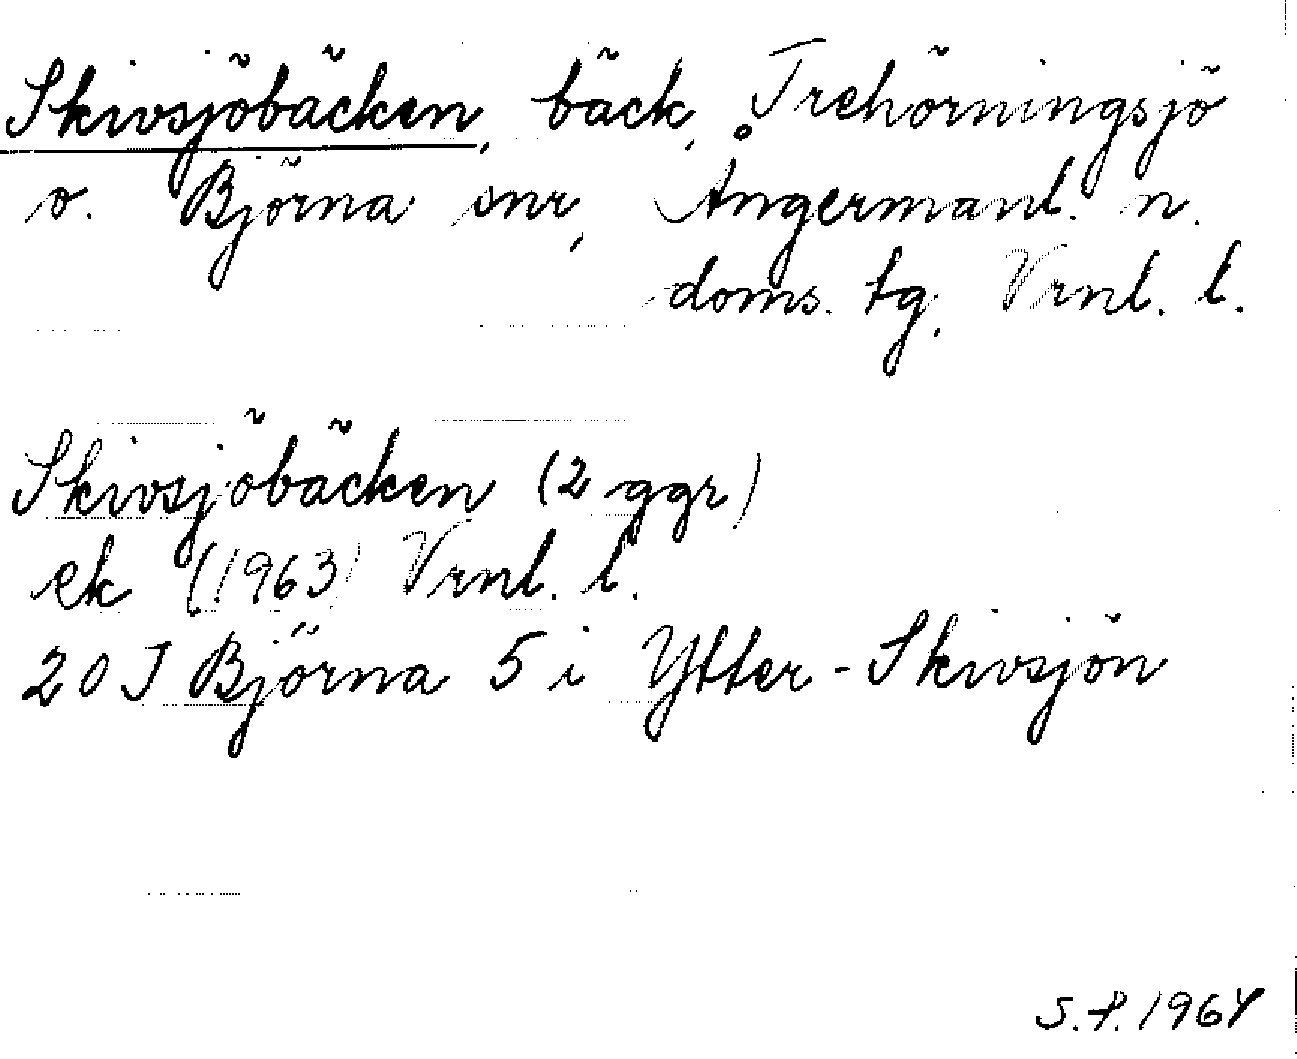 Skivsjöbäcken, bäck, Trehörningsjö
o. Björna snr, Ångermanl. n.
doms. tg. Vrnl. l.
Skivsjöbäcken (2 ggr)
ek (1963) Vrnl. l.
20 J Björna 5 i Ytter-Skivsjön
S.P. 1964